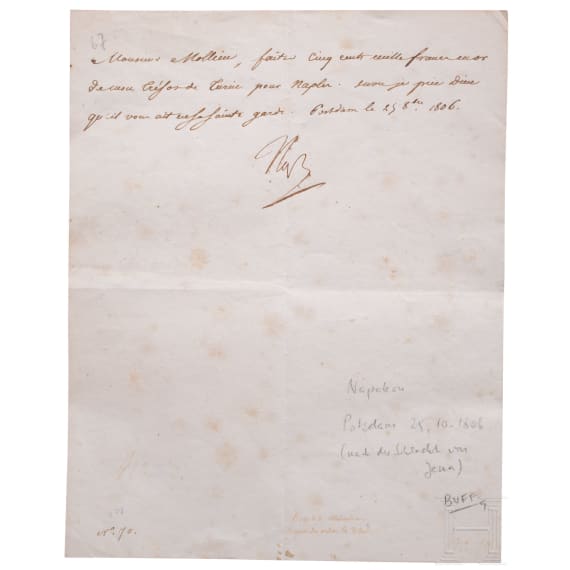 67
Monsieur Mollien, faites cinq cents mille francs en or
de mon Trésor de Turin pour Naples. sur ce je prie Dieu
qu'il vous ait en sa sainte garde. Postdam le 25 8bre 1806.
Nap
Napoleon
Potsdam 25.10.1806
(nach der Schlacht von
Jena)
BUFF
N°. 70.